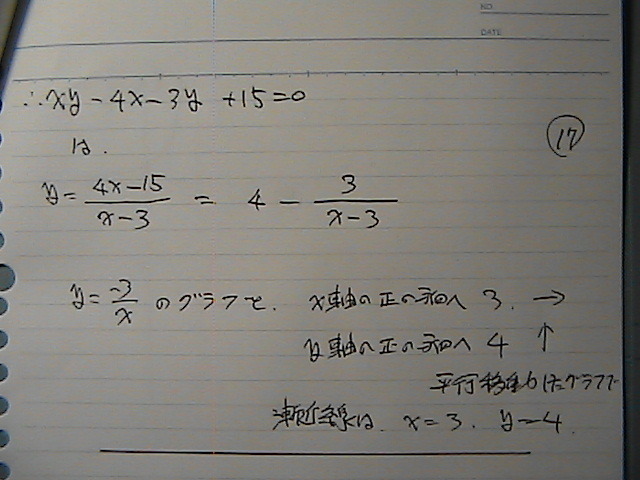 NO.
DATE
∴ xy - 4x - 3y + 15 = 0
は.
⑰
y = (4x - 15)/(x - 3) = 4 - 3/(x - 3)
y = -3/x のグラフを. x軸の正の方向へ 3. →
y軸の正の方向へ 4 ↑
平行移動したグラフで
漸近線は. x = 3. y = 4.